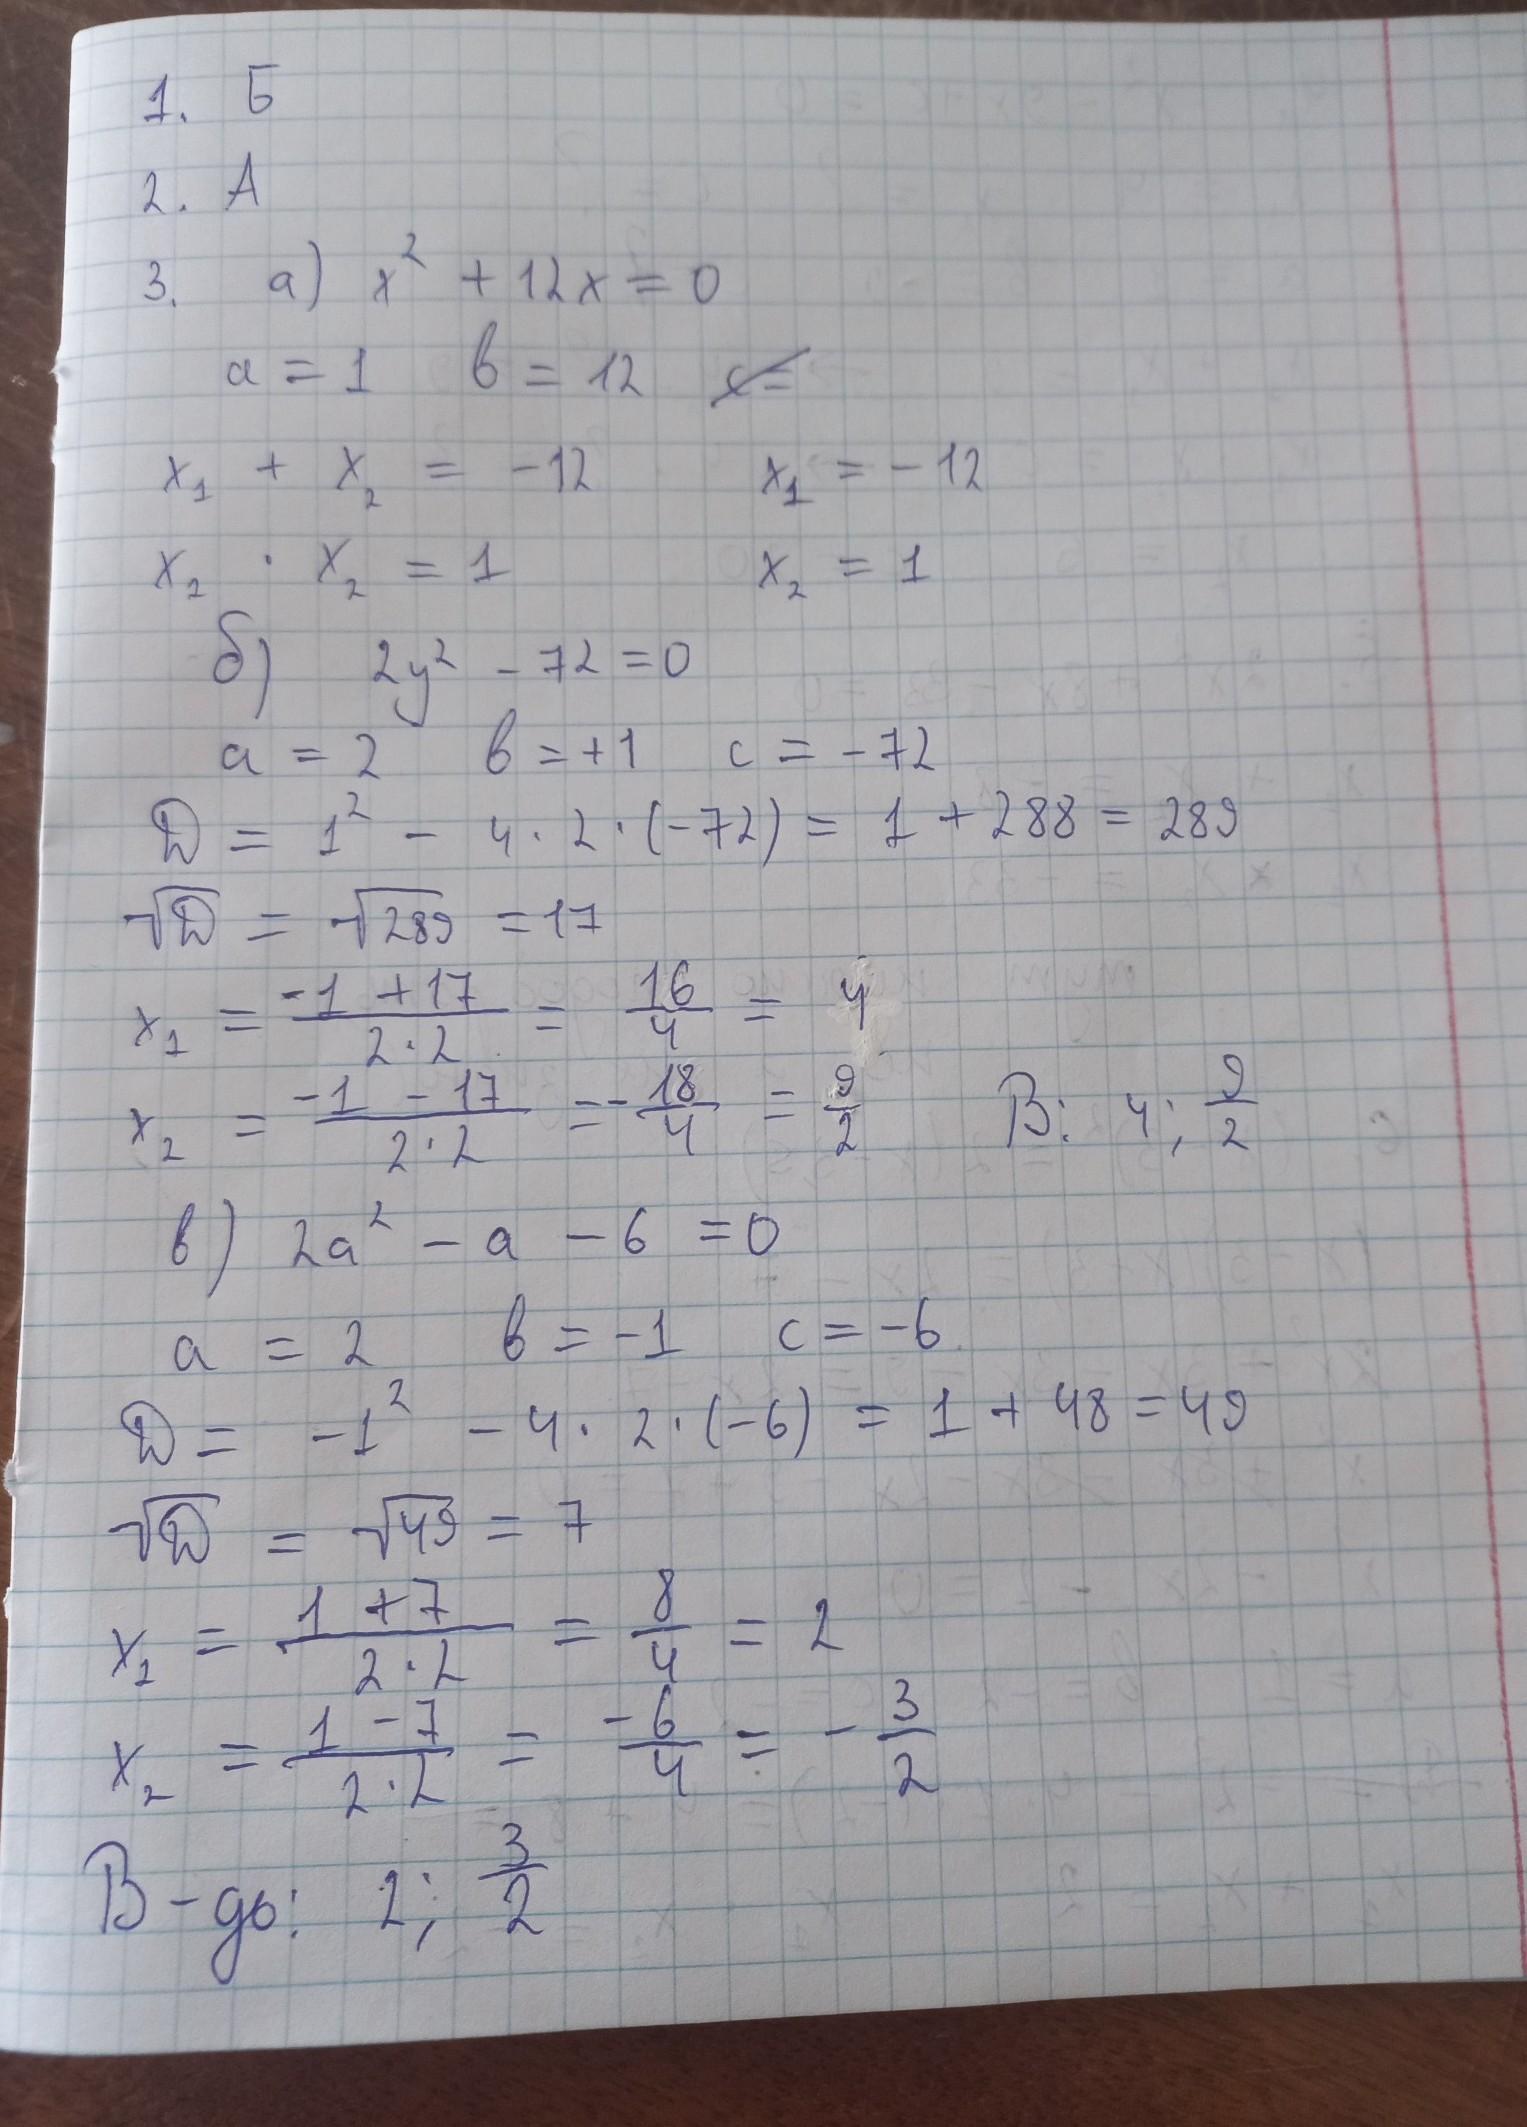 1. Б
2. А
3. а) x² + 12x = 0
a = 1 b = 12 c=
x₁ + x₂ = -12 x₁ = -12
x₂ · x₂ = 1 x₂ = 1
б) 2y² - 72 = 0
a = 2 b = +1 c = -72
D = 1² - 4 · 2 · (-72) = 1 + 288 = 289
√D = √289 = 17
x₁ = (-1 + 17)/(2·2) = 16/4 = 4
x₂ = (-1 - 17)/(2·2) = -18/4 = 9/2 В: 4; 9/2
в) 2a² - a - 6 = 0
a = 2 b = -1 c = -6
D = -1² - 4 · 2 · (-6) = 1 + 48 = 49
√D = √49 = 7
x₁ = (1 + 7)/(2·2) = 8/4 = 2
x₂ = (1 - 7)/(2·2) = -6/4 = -3/2
В-дь: 2; 3/2